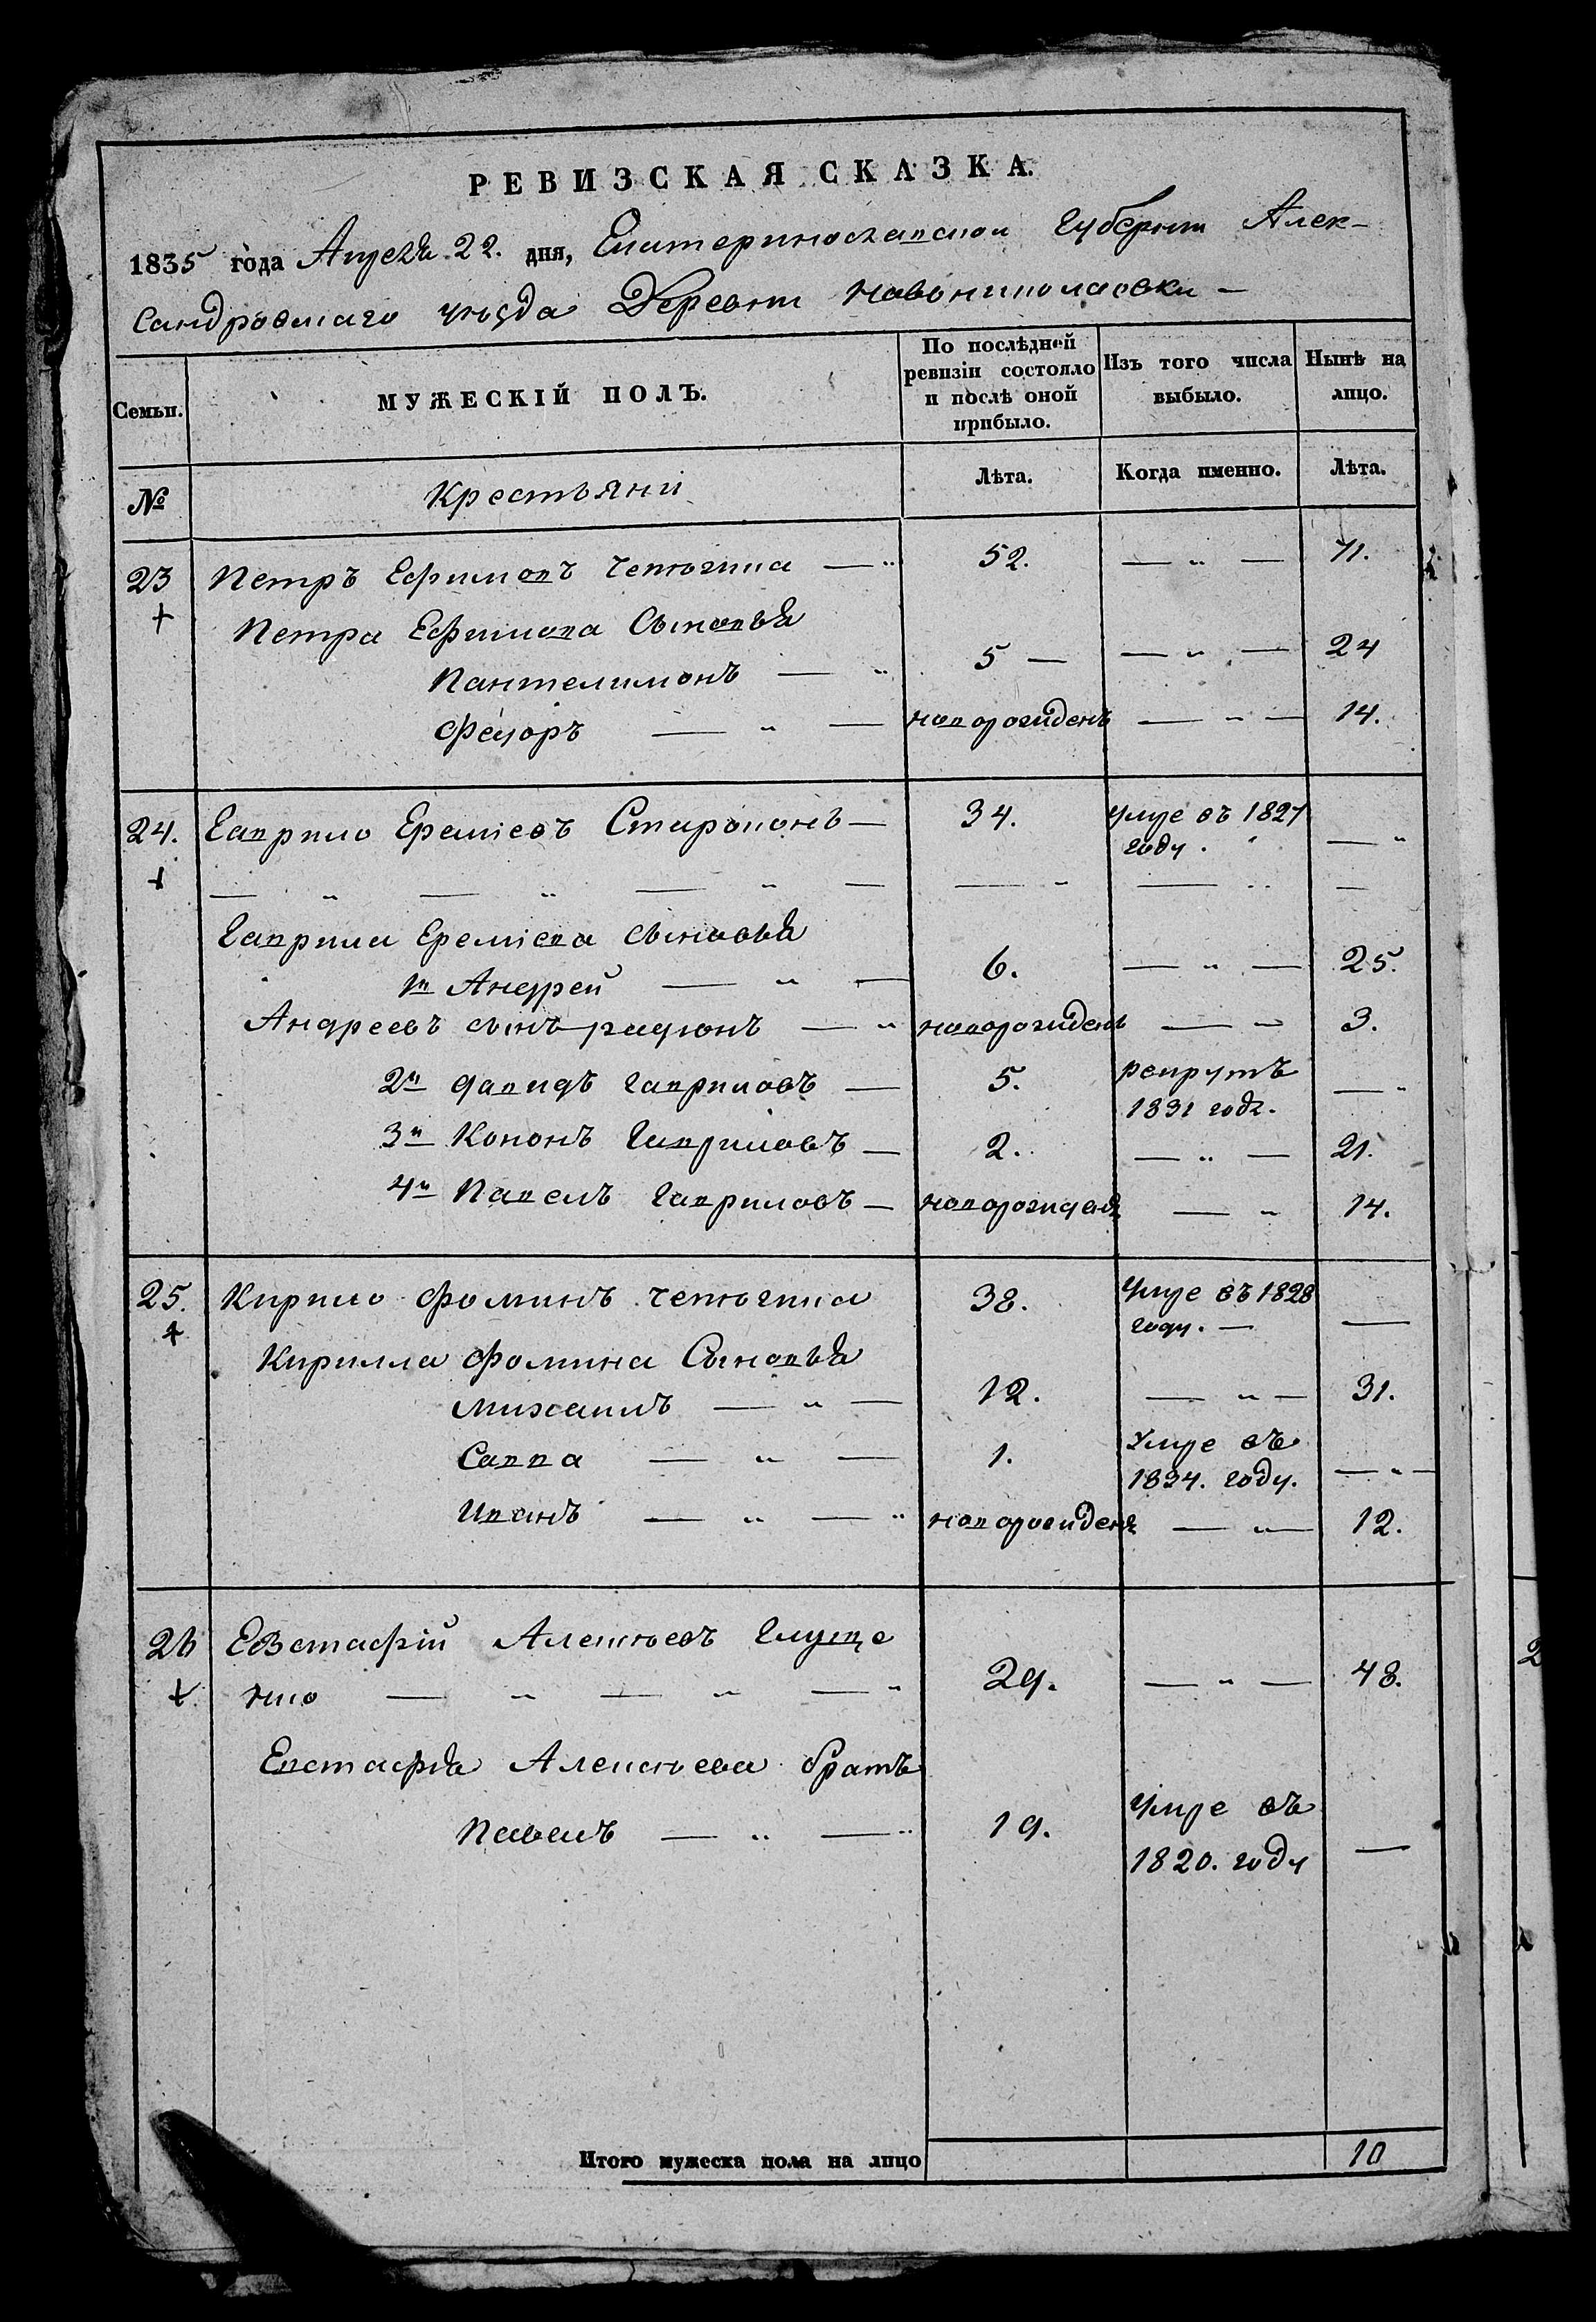 РЕВИЗСКАЯ СКАЗКА.
1835 года Апреля 22. дня, Екатеринославской Губернии Алек-
сандровскаго уѣзда Деревни Новониколаовки —
Семьи.
МУЖЕСКІЙ ПОЛЪ.
По послѣдней ревизіи состояло и послѣ оной прибыло.
Изъ того числа выбыло.
Нынѣ на лицо.
№ Крестьяни Лѣта. Когда именно. Лѣта.
23 Петръ Ефимовъ — " 52. — " — 71.
Петра Ефимова Сыновья
Пантелимонъ — " 5 — — " — 24
Федоръ — " — новорожденъ — " — 14.
24. Гаврило Еремѣевъ — 34. умре въ 1827 году. — "
— " — " — " — — " — " —
Гаврила Еремѣева сыновья
1й Андрей — " — 6. — " — 25.
Андреевъ сынъ радионъ — " новорожденъ — " 3.
2й давидъ гавриловъ — 5. рекрутъ 1831 года. — "
3й Кононъ Гавриловъ — 2. — " — 21.
4й Павелъ гавриловъ — новорожденъ — " 14.
25. Кирило Фоминъ 38. Умре въ 1828 году. — —
Кирилла Фомина Сыновья
Михаилъ — " — 12. — " — 31.
Савва — " — 1. Умре въ 1834. году. — " —
Иванъ — " — " новорожденъ — " — 12.
26 Евстафій Алексѣевъ Глуще
нко — " — " — " 29. — " — 48.
Евстафія Алексѣева братъ
Павелъ — " — " 19. Умре въ 1820. году —
Итого мужеска пола на лицо 10